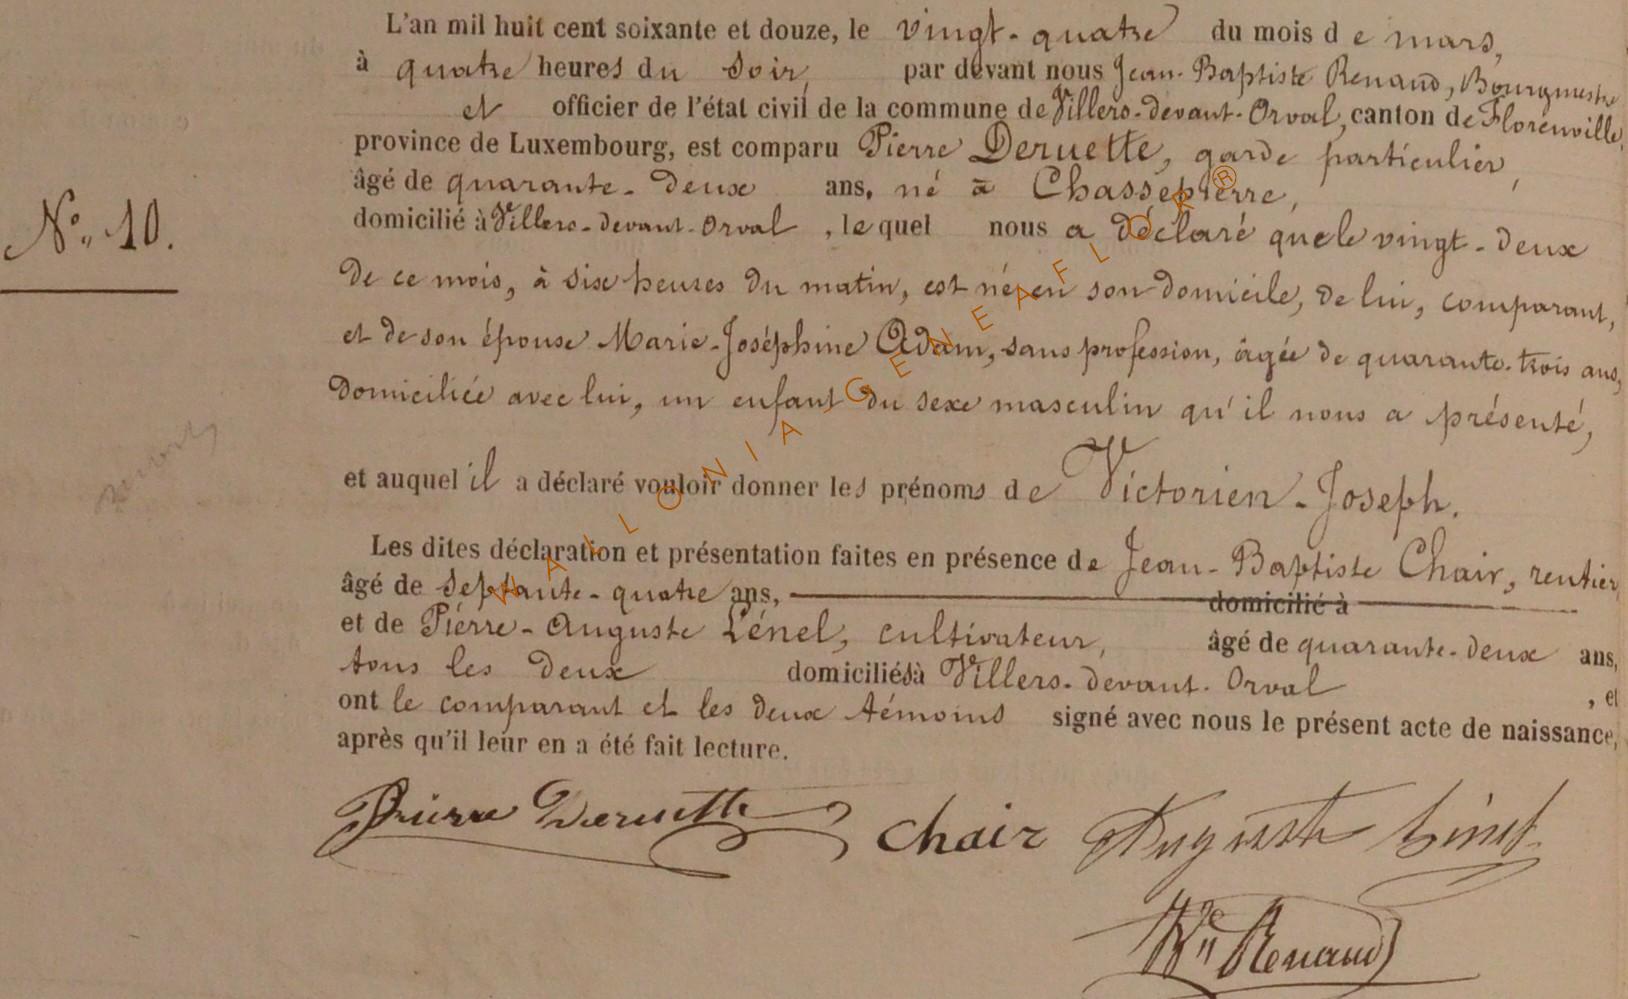 L'an mil huit cent soixante et douze, le vingt-quatre du mois de mars,
à quatre heures du soir, par devant nous Jean-Baptiste Renaud, Bourgmestre
et officier de l'état civil de la commune de Villers-devant-Orval, canton de Florenville,
province de Luxembourg, est comparu Pierre Deruette, garde particulier,
âgé de quarante-deux ans, né à Chassepierre,
domicilié à Villers-devant-Orval, lequel nous a déclaré que le vingt-deux
N° 10.
de ce mois, à six heures du matin, est né en son domicile, de lui, comparant,
et de son épouse Marie-Joséphine Adam, sans profession, âgée de quarante-trois ans,
domiciliée avec lui, un enfant du sexe masculin qu'il nous a présenté,
et auquel il a déclaré vouloir donner les prénoms de Victorien-Joseph.
Les dites déclaration et présentation faites en présence de Jean-Baptiste Chair, rentier,
âgé de septante-quatre ans, domicilié à
et de Pierre-Auguste Lénel, cultivateur, âgé de quarante-deux ans,
tous les deux domiciliés à Villers-devant-Orval, et
ont le comparant et les deux témoins signé avec nous le présent acte de naissance,
après qu'il leur en a été fait lecture.
Pierre Deruette Chair Auguste
Renaud
WALLONIA GENEAFLOR ®